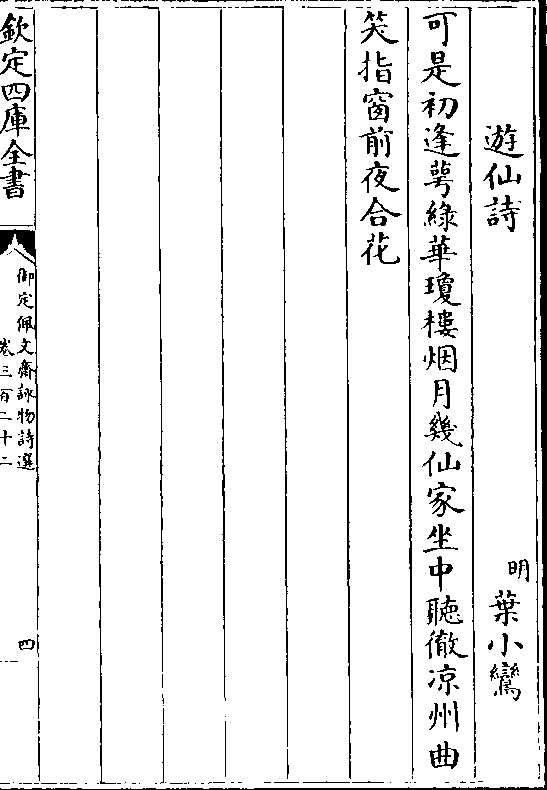 遊仙詩
明 葉小鸞
可是初逢萼綠華瓊樓烟月幾仙家坐中聽徹凉州曲
笑指窗前夜合花
欽定四庫全書
御定佩文齋詠物詩選
卷三百二十二
四